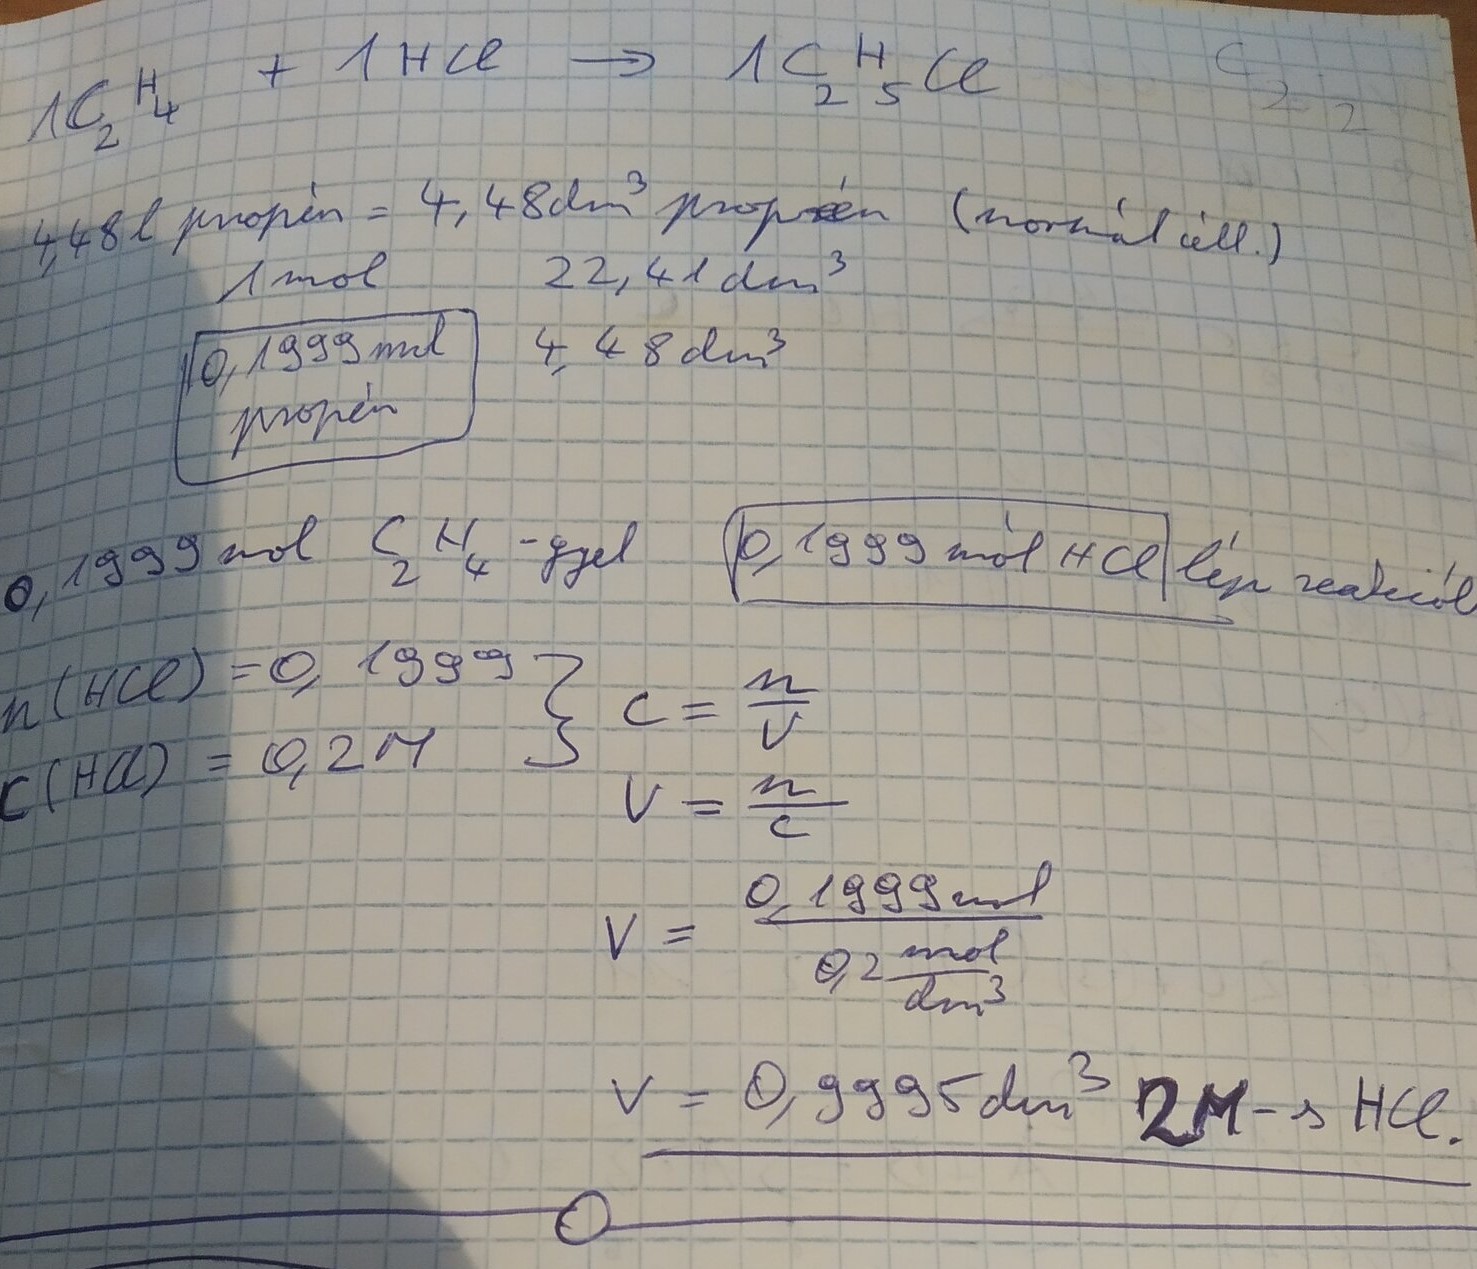 1C₂H₄ + 1HCl → 1C₂H₅Cl C₂ ₂
4,48l propén = 4,48dm³ propén (normál áll.)
1mol 22,41dm³
0,1999mol 4,48dm³
propén
0,1999mol C₂H₄-gyel 0,1999 mól HCl lép reakcióba
n(HCl) = 0,1999 } c = n/V
c(HCl) = 0,2M
V = n/c
V = 0,1999mol / 0,2 mol/dm³
V = 0,9995dm³ 2M-s HCl.